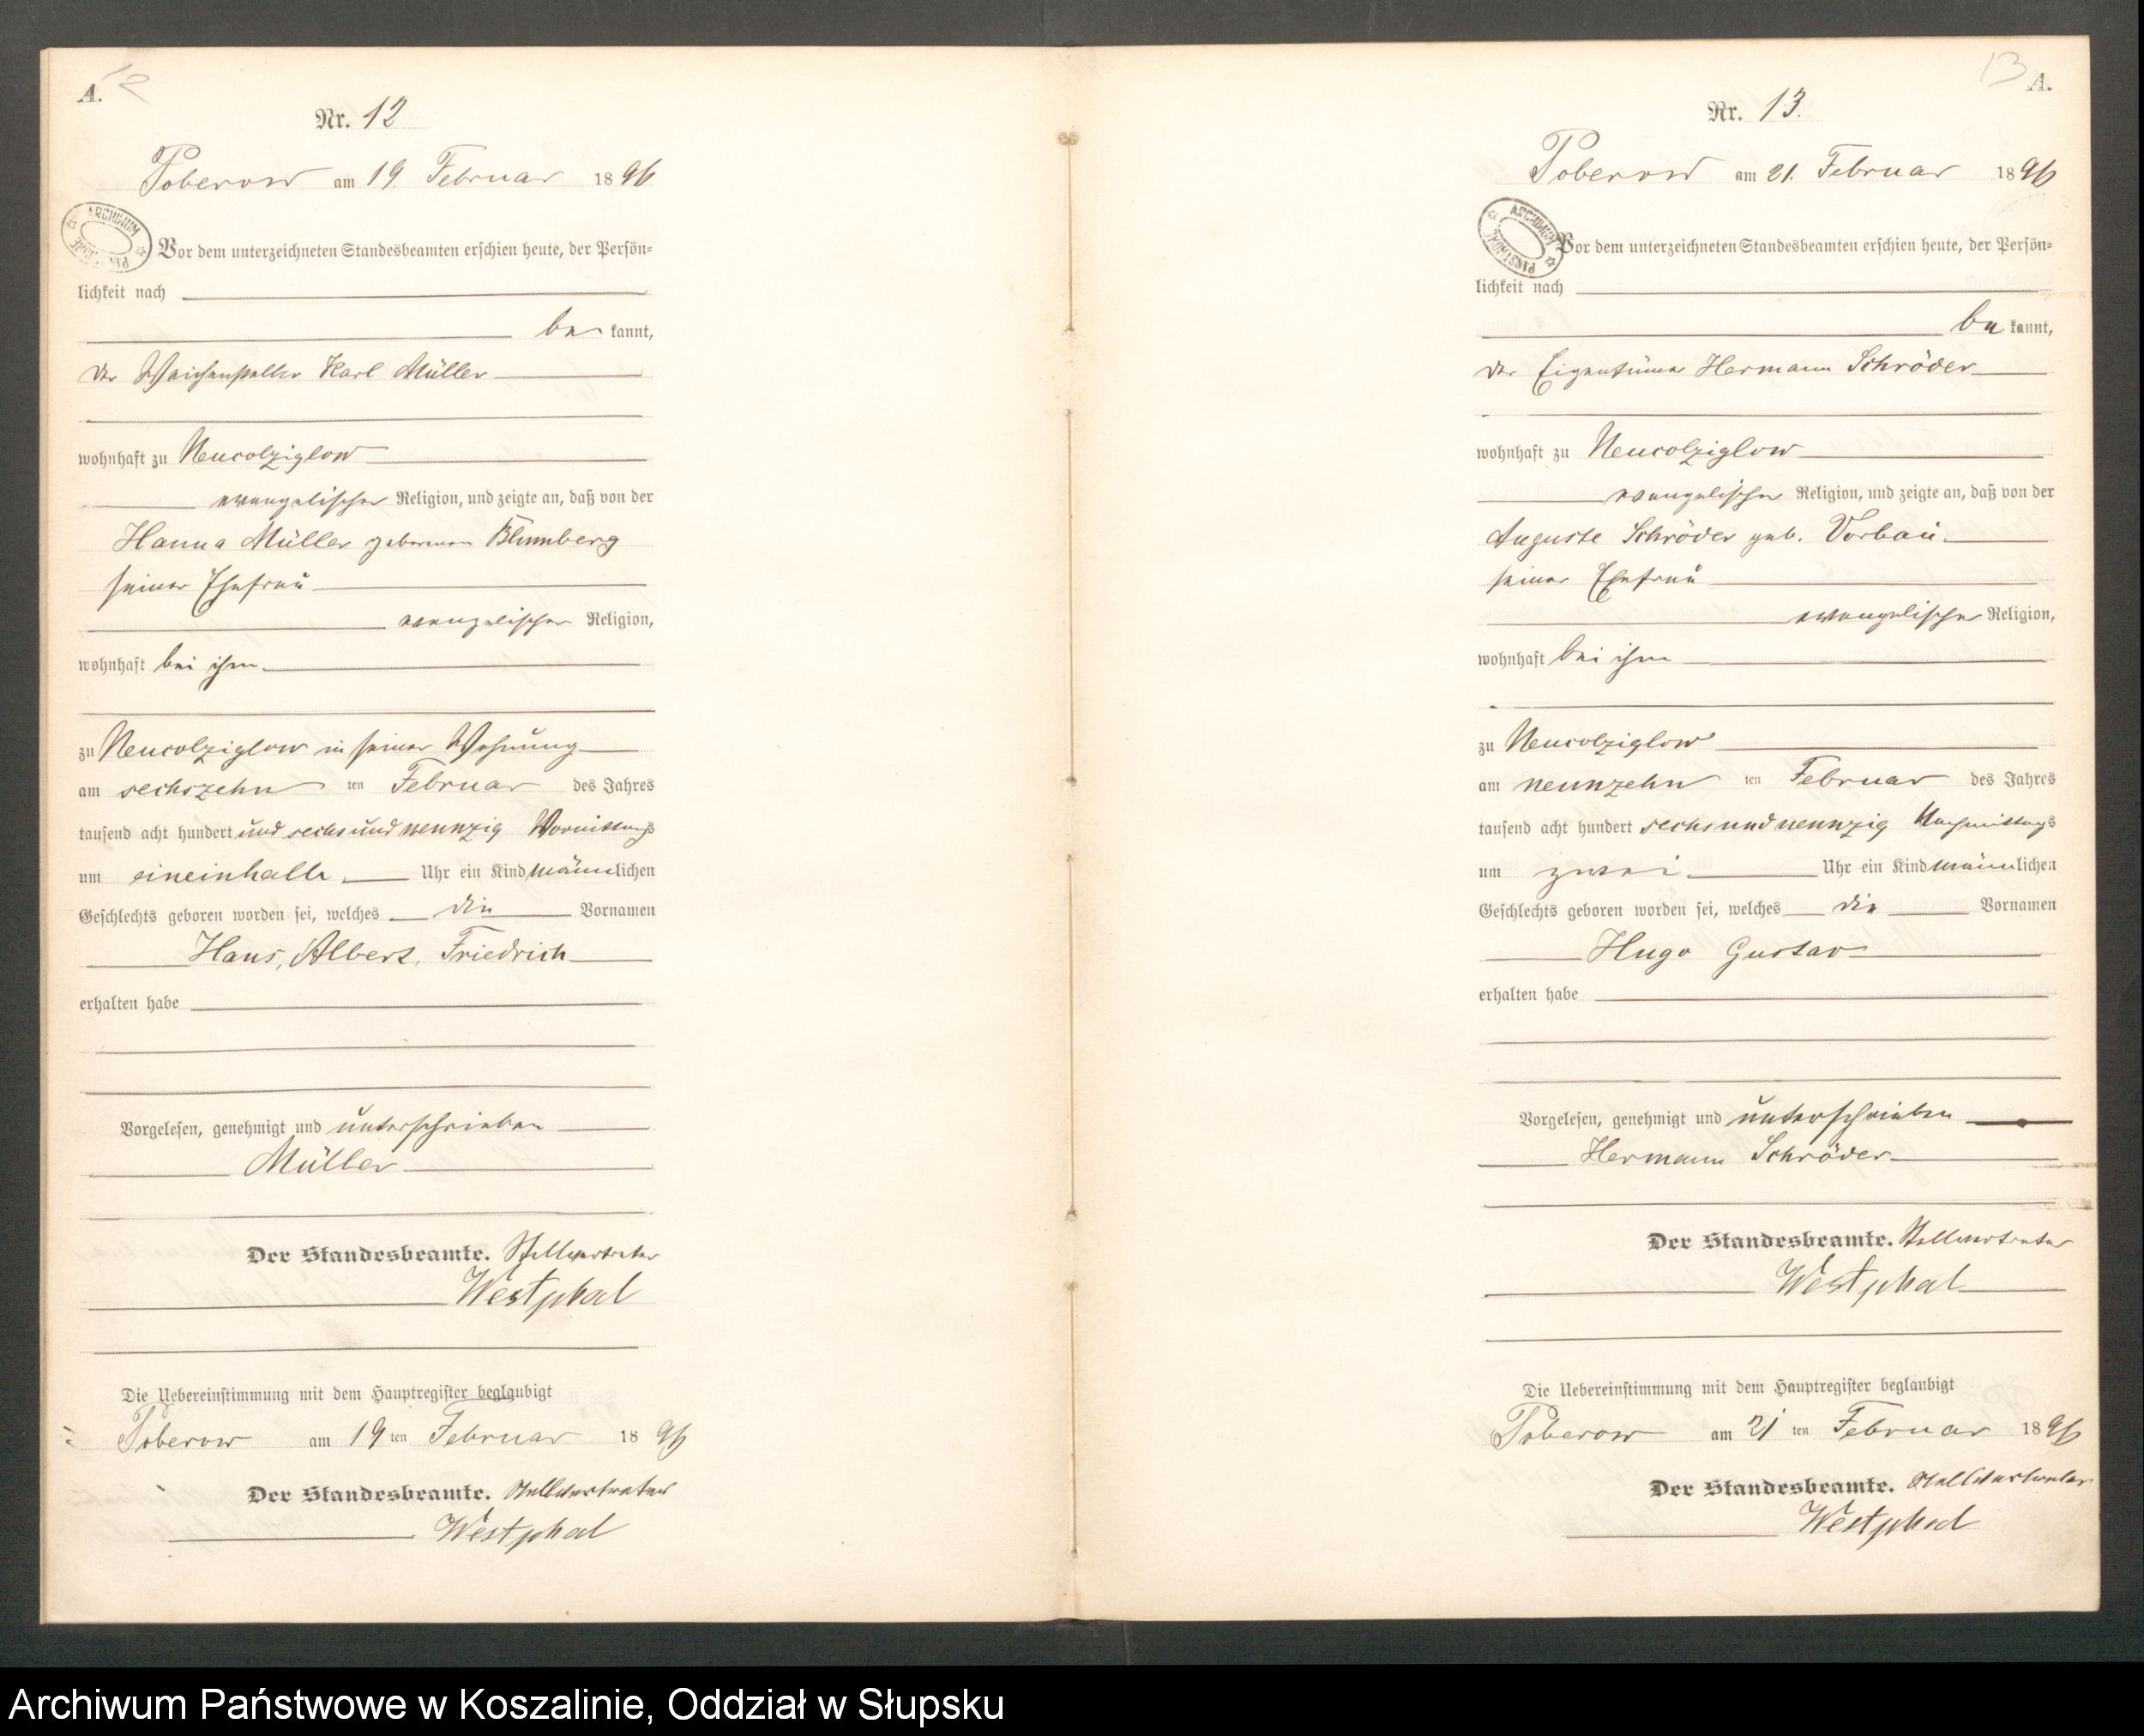 A. 12
Nr. 12
Poberow am 19. Februar 1896
ARCHIWUM PAŃSTWOWE
Vor dem unterzeichneten Standesbeamten erschien heute, der Persön-
lichkeit nach
be kannt,
der Weichensteller Karl Müller
wohnhaft zu Neucolziglow
evangelischer Religion, und zeigte an, daß von der
Hanna Müller geborenen Blumberg
seiner Ehefrau
evangelischer Religion,
wohnhaft bei ihm
zu Neucolziglow in seiner Wohnung
am sechszehn ten Februar des Jahres
tausend acht hundert und sechsundneunzig Vormittags
um eineinhalb Uhr ein Kind männlichen
Geschlechts geboren worden sei, welches die Vornamen
Hans, Albert, Friedrich
erhalten habe
Vorgelesen, genehmigt und unterschrieben
Müller
Der Standesbeamte. Stellvertreter
Westphal
Die Uebereinstimmung mit dem Hauptregister beglaubigt
Poberow am 19 ten Februar 1896
Der Standesbeamte. Stellvertreter
Westphal
13 A.
Nr. 13.
Poberow am 21. Februar 1896
ARCHIWUM PAŃSTWOWE
Vor dem unterzeichneten Standesbeamten erschien heute, der Persön-
lichkeit nach
be kannt,
der Eigentümer Hermann Schröder
wohnhaft zu Neucolziglow
evangelischer Religion, und zeigte an, daß von der
Auguste Schröder geb. Vorbau
seiner Ehefrau
evangelischer Religion,
wohnhaft bei ihm
zu Neucolziglow
am neunzehn ten Februar des Jahres
tausend acht hundert sechsundneunzig Nachmittags
um zwei Uhr ein Kind männlichen
Geschlechts geboren worden sei, welches die Vornamen
Hugo Gustav
erhalten habe
Vorgelesen, genehmigt und unterschrieben
Hermann Schröder
Der Standesbeamte. Stellvertreter
Westphal
Die Uebereinstimmung mit dem Hauptregister beglaubigt
Poberow am 21 ten Februar 1896
Der Standesbeamte. Stellvertreter
Westphal
Archiwum Państwowe w Koszalinie, Oddział w Słupsku